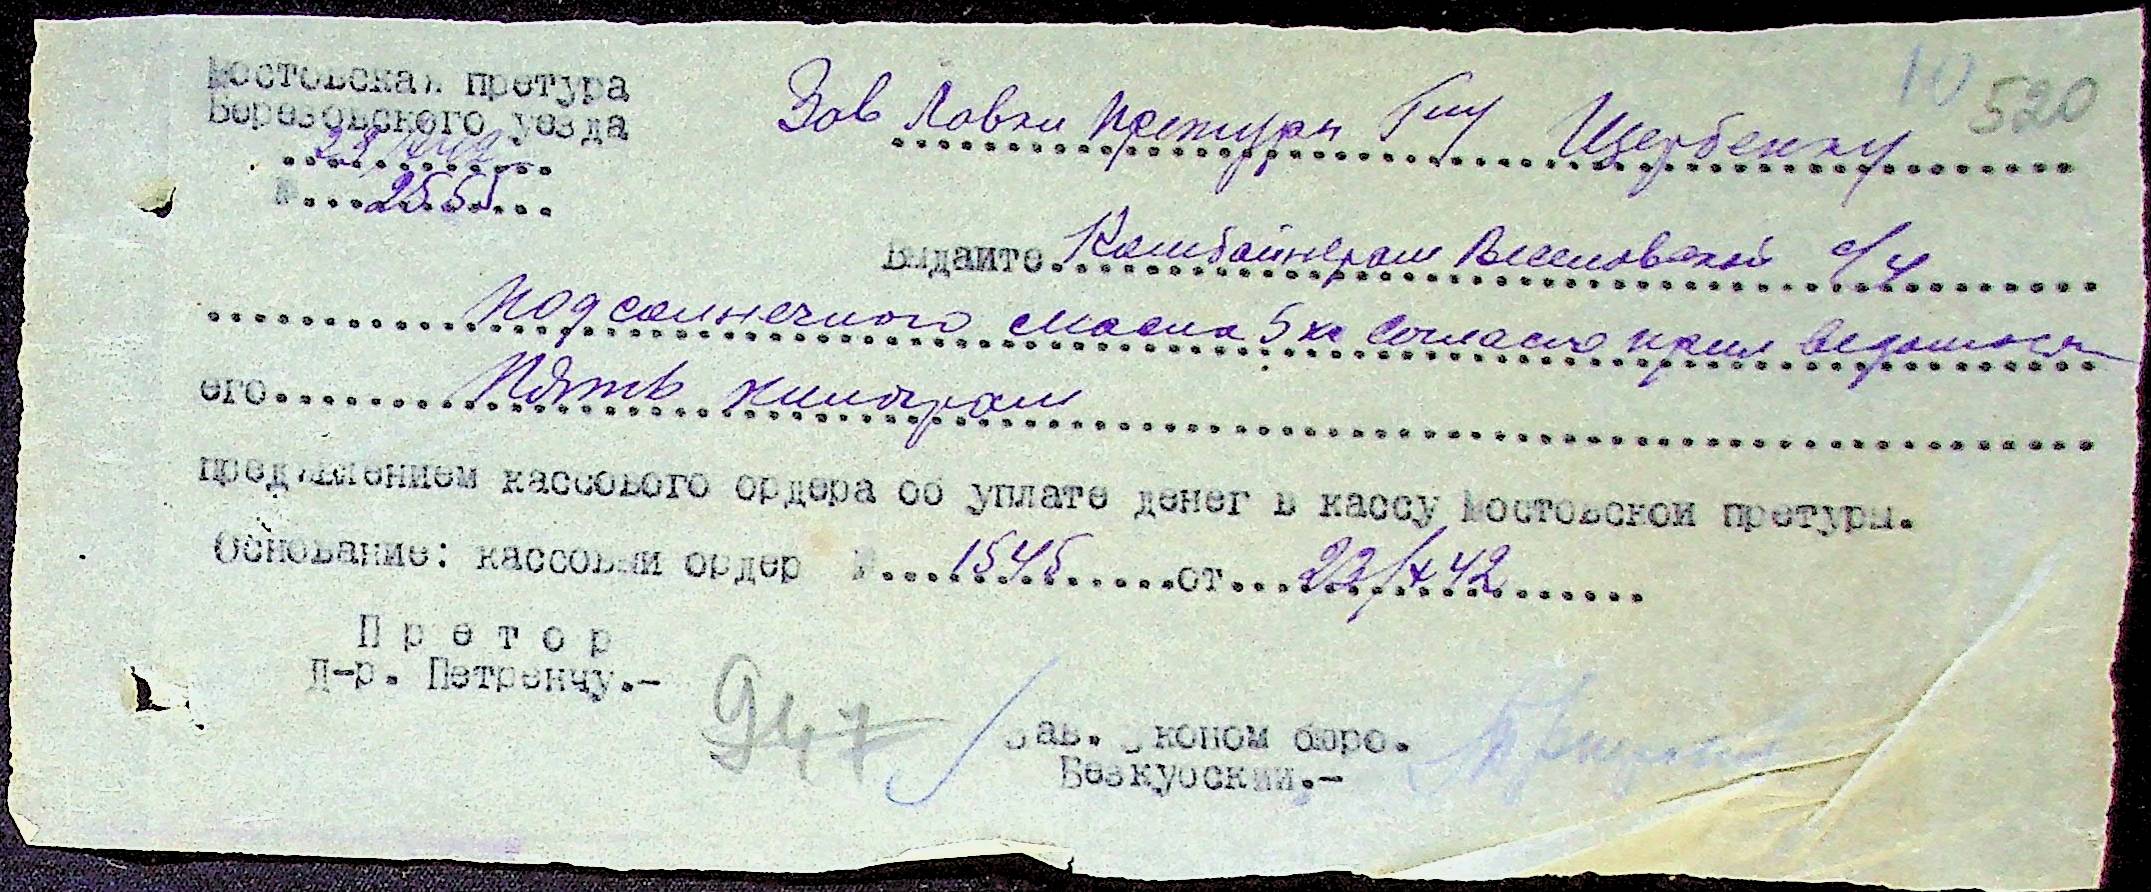 Мостовская претура
Березовского уезда
№ 2555
10 520
Зав Лавки претуры Гну Щербенку
Выдайте Комбайнерам Веселовской с/у
подсолнечного масла 5 кг согласно прил ведомости
его Пять килограм
предъявлением кассового ордера об уплате денег в кассу Мостовской претуры.
Основание: кассовый ордер № 1545 от 22/X 42
Претор
Д-р. Петренчу.-
947
Зав. Эконом бюро.
Безкубский.-